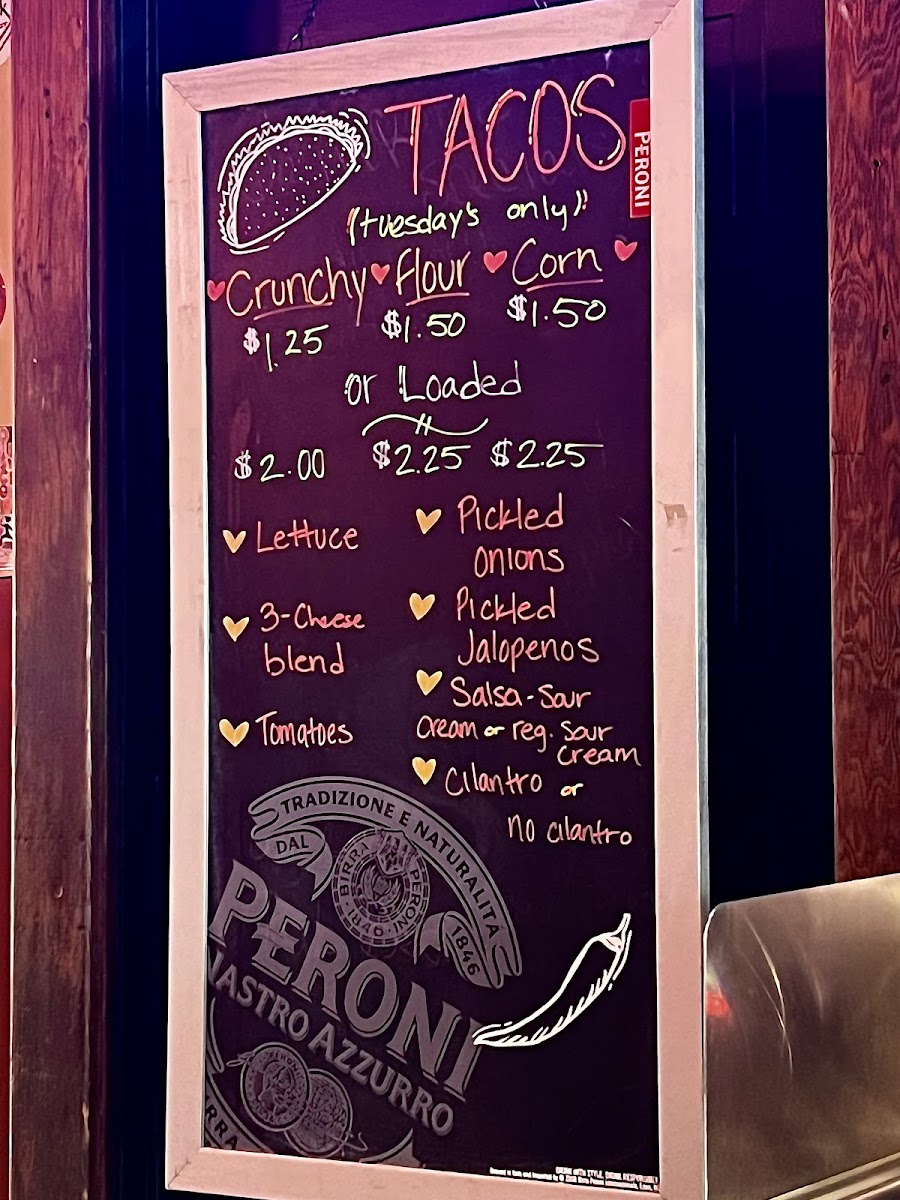 TACOS
PERONI
(tuesday's only)
Crunchy flour Corn
$1.25 $1.50 $1.50
or Loaded
$2.00 $2.25 $2.25
Lettuce
3-Cheese
blend
Tomatoes
Pickled
onions
Pickled
Jalopenos
Salsa-Sour
Cream or reg. Sour
Cream
Cilantro or
no cilantro
TRADIZIONE E NATURALITÀ
DAL 1846
BIRRA PERONI
1846
PERONI
NASTRO AZZURRO